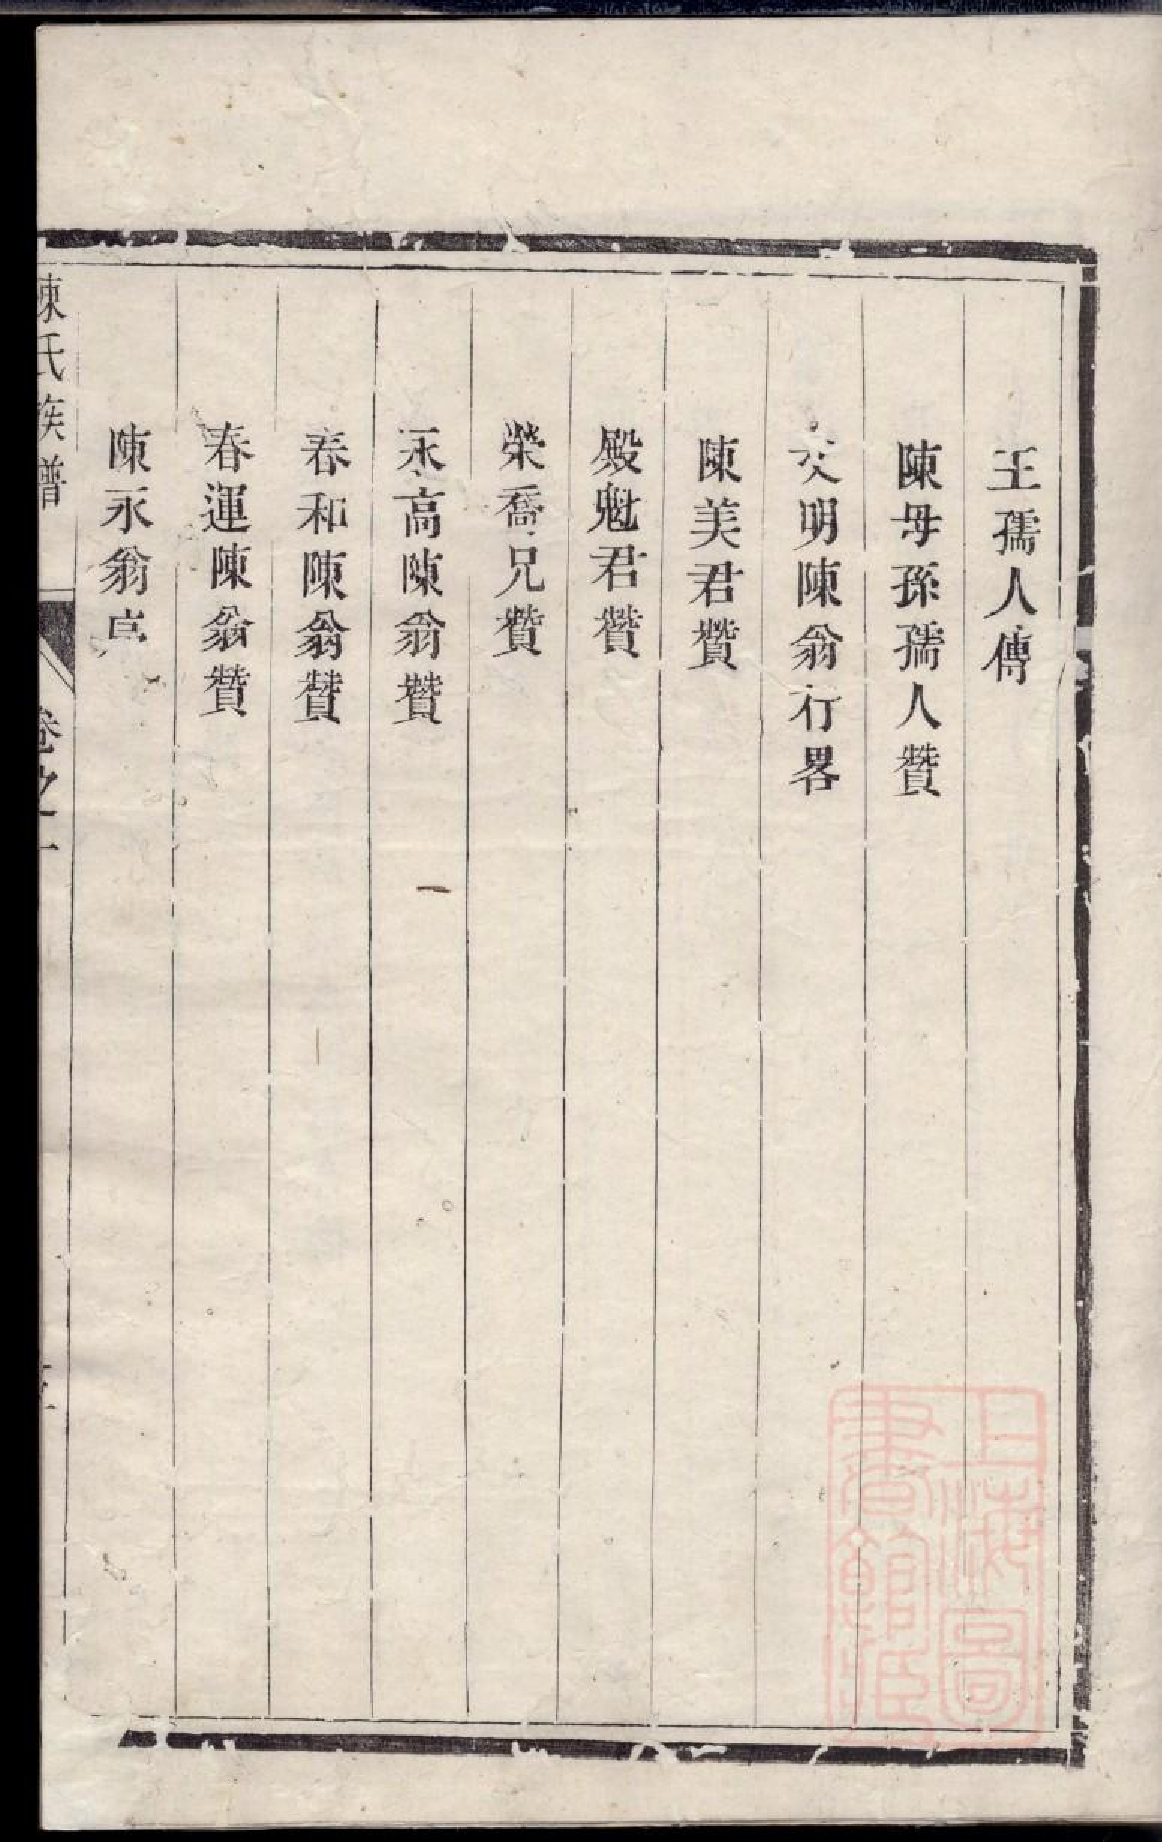 王孺人傳
陳母孫孺人贊
文明陳翁行畧
陳美君贊
殿魁君贊
榮喬兄贊
永高陳翁贊
春和陳翁贊
春運陳翁贊
陳永翁
陳氏族譜
卷之一
上海圖
書館藏